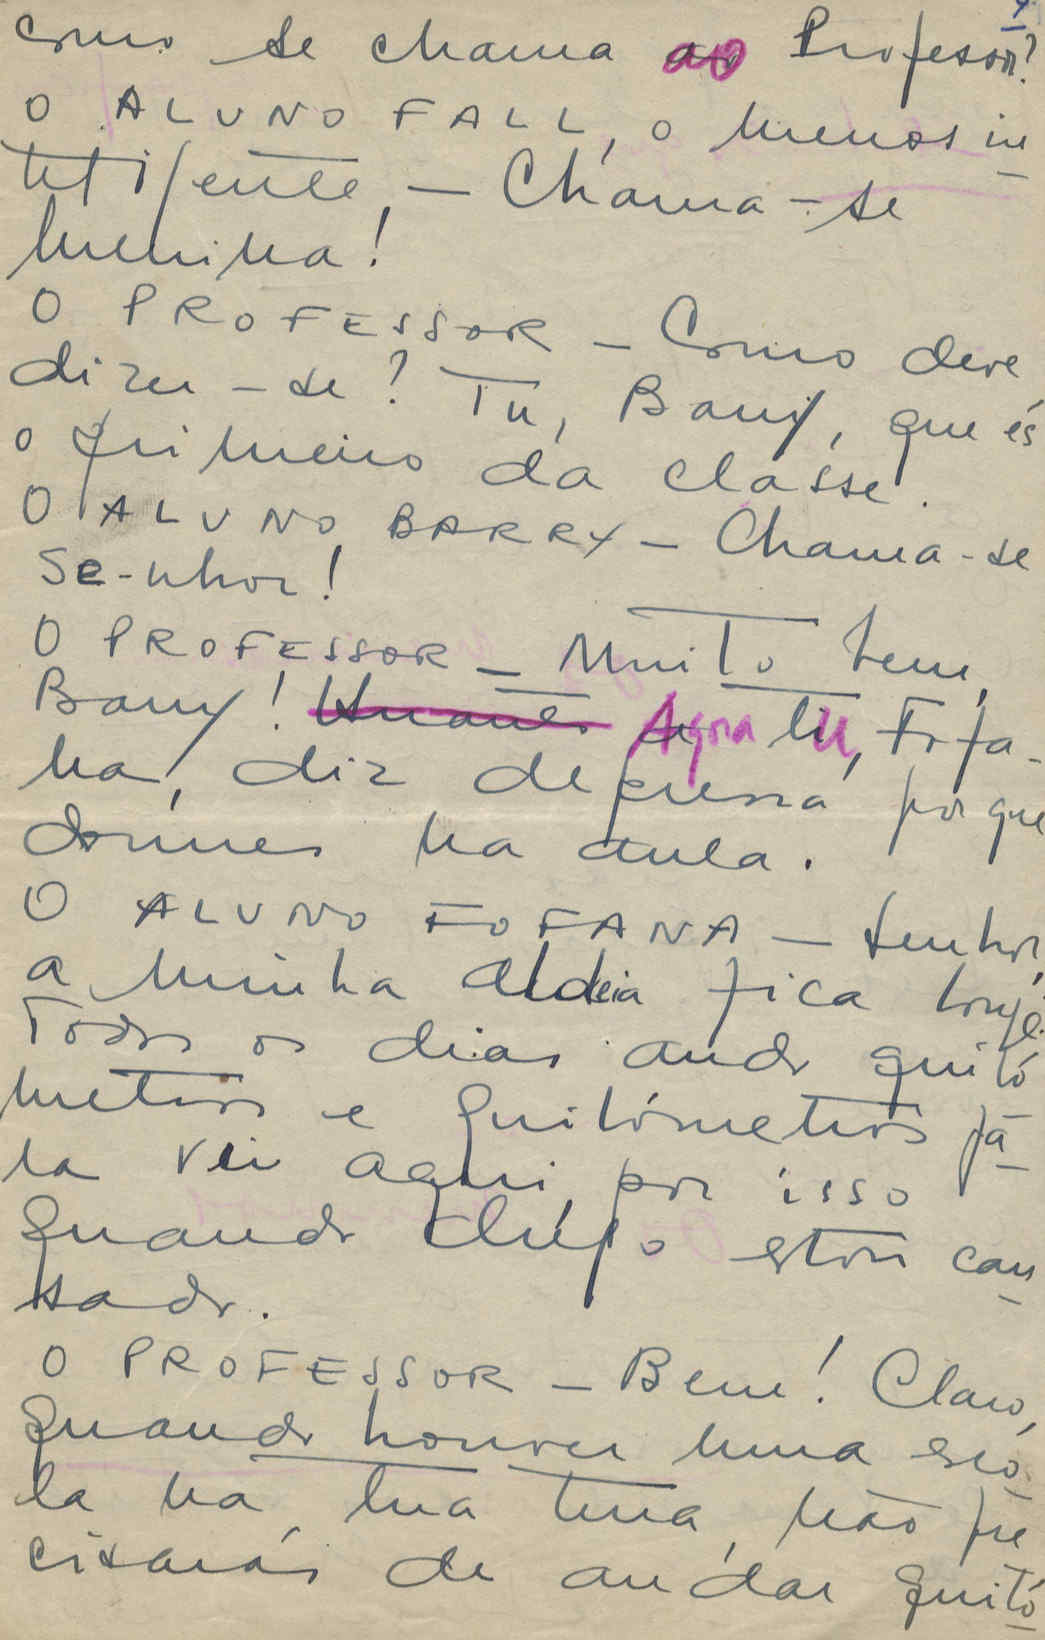 como se chama ao Professor?
O ALUNO FALL, o menos in
teligente, — Chama-se
menina!
O PROFESSOR — Como deve
dizer-se? Tu, Barry, que és
o primeiro da classe.
O ALUNO BARRY — Chama-se
Se-nhor!
O PROFESSOR — Muito bem,
Barry! Agora tu, Fofa-
na, diz depressa porque
dormes na aula.
O ALUNO FOFANA — Senhor,
a minha aldeia fica longe.
Todos os dias ando quiló
metros e quilómetros pa
ra vir aqui, por isso
quando chego estou can
sado.
O PROFESSOR — Bem! Claro,
quando houver uma esco
la na tua terra, não pre
cisarás de andar quiló